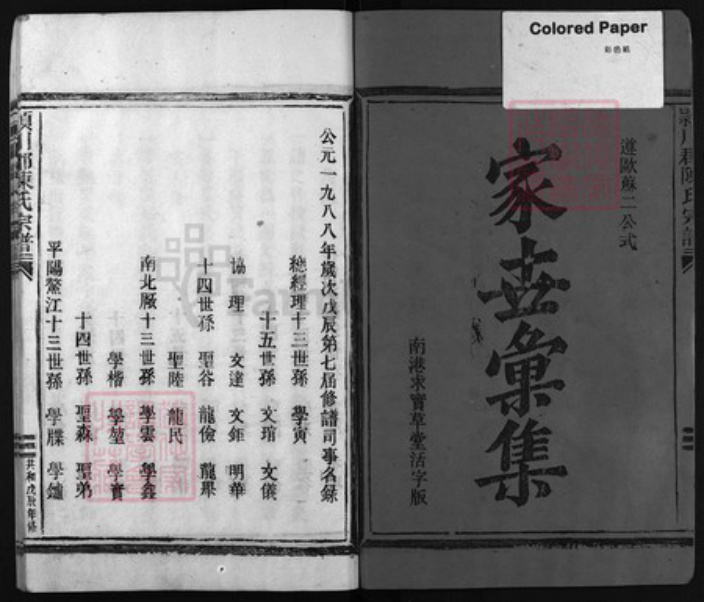 Colored Paper
彩色紙
潁川郡陳氏宗譜
遵歐蘇二公式
家世彙集
南港求實草堂活字版
公元一九八八年歲次戊辰第七屆修譜司事名錄
總經理十三世孫 學寅
十五世孫 文琯 文儀
協理 文達 文鉅 明華
十四世孫 聖谷 龍儉 龍界
聖陸 龍民
南北廠十三世孫 學雲 學鑫
學楷 學堃 學實
十四世孫 聖森 聖弟
平陽鰲江十三世孫 學牒 學鑪
潁川郡陳氏宗譜
共和戊辰年修